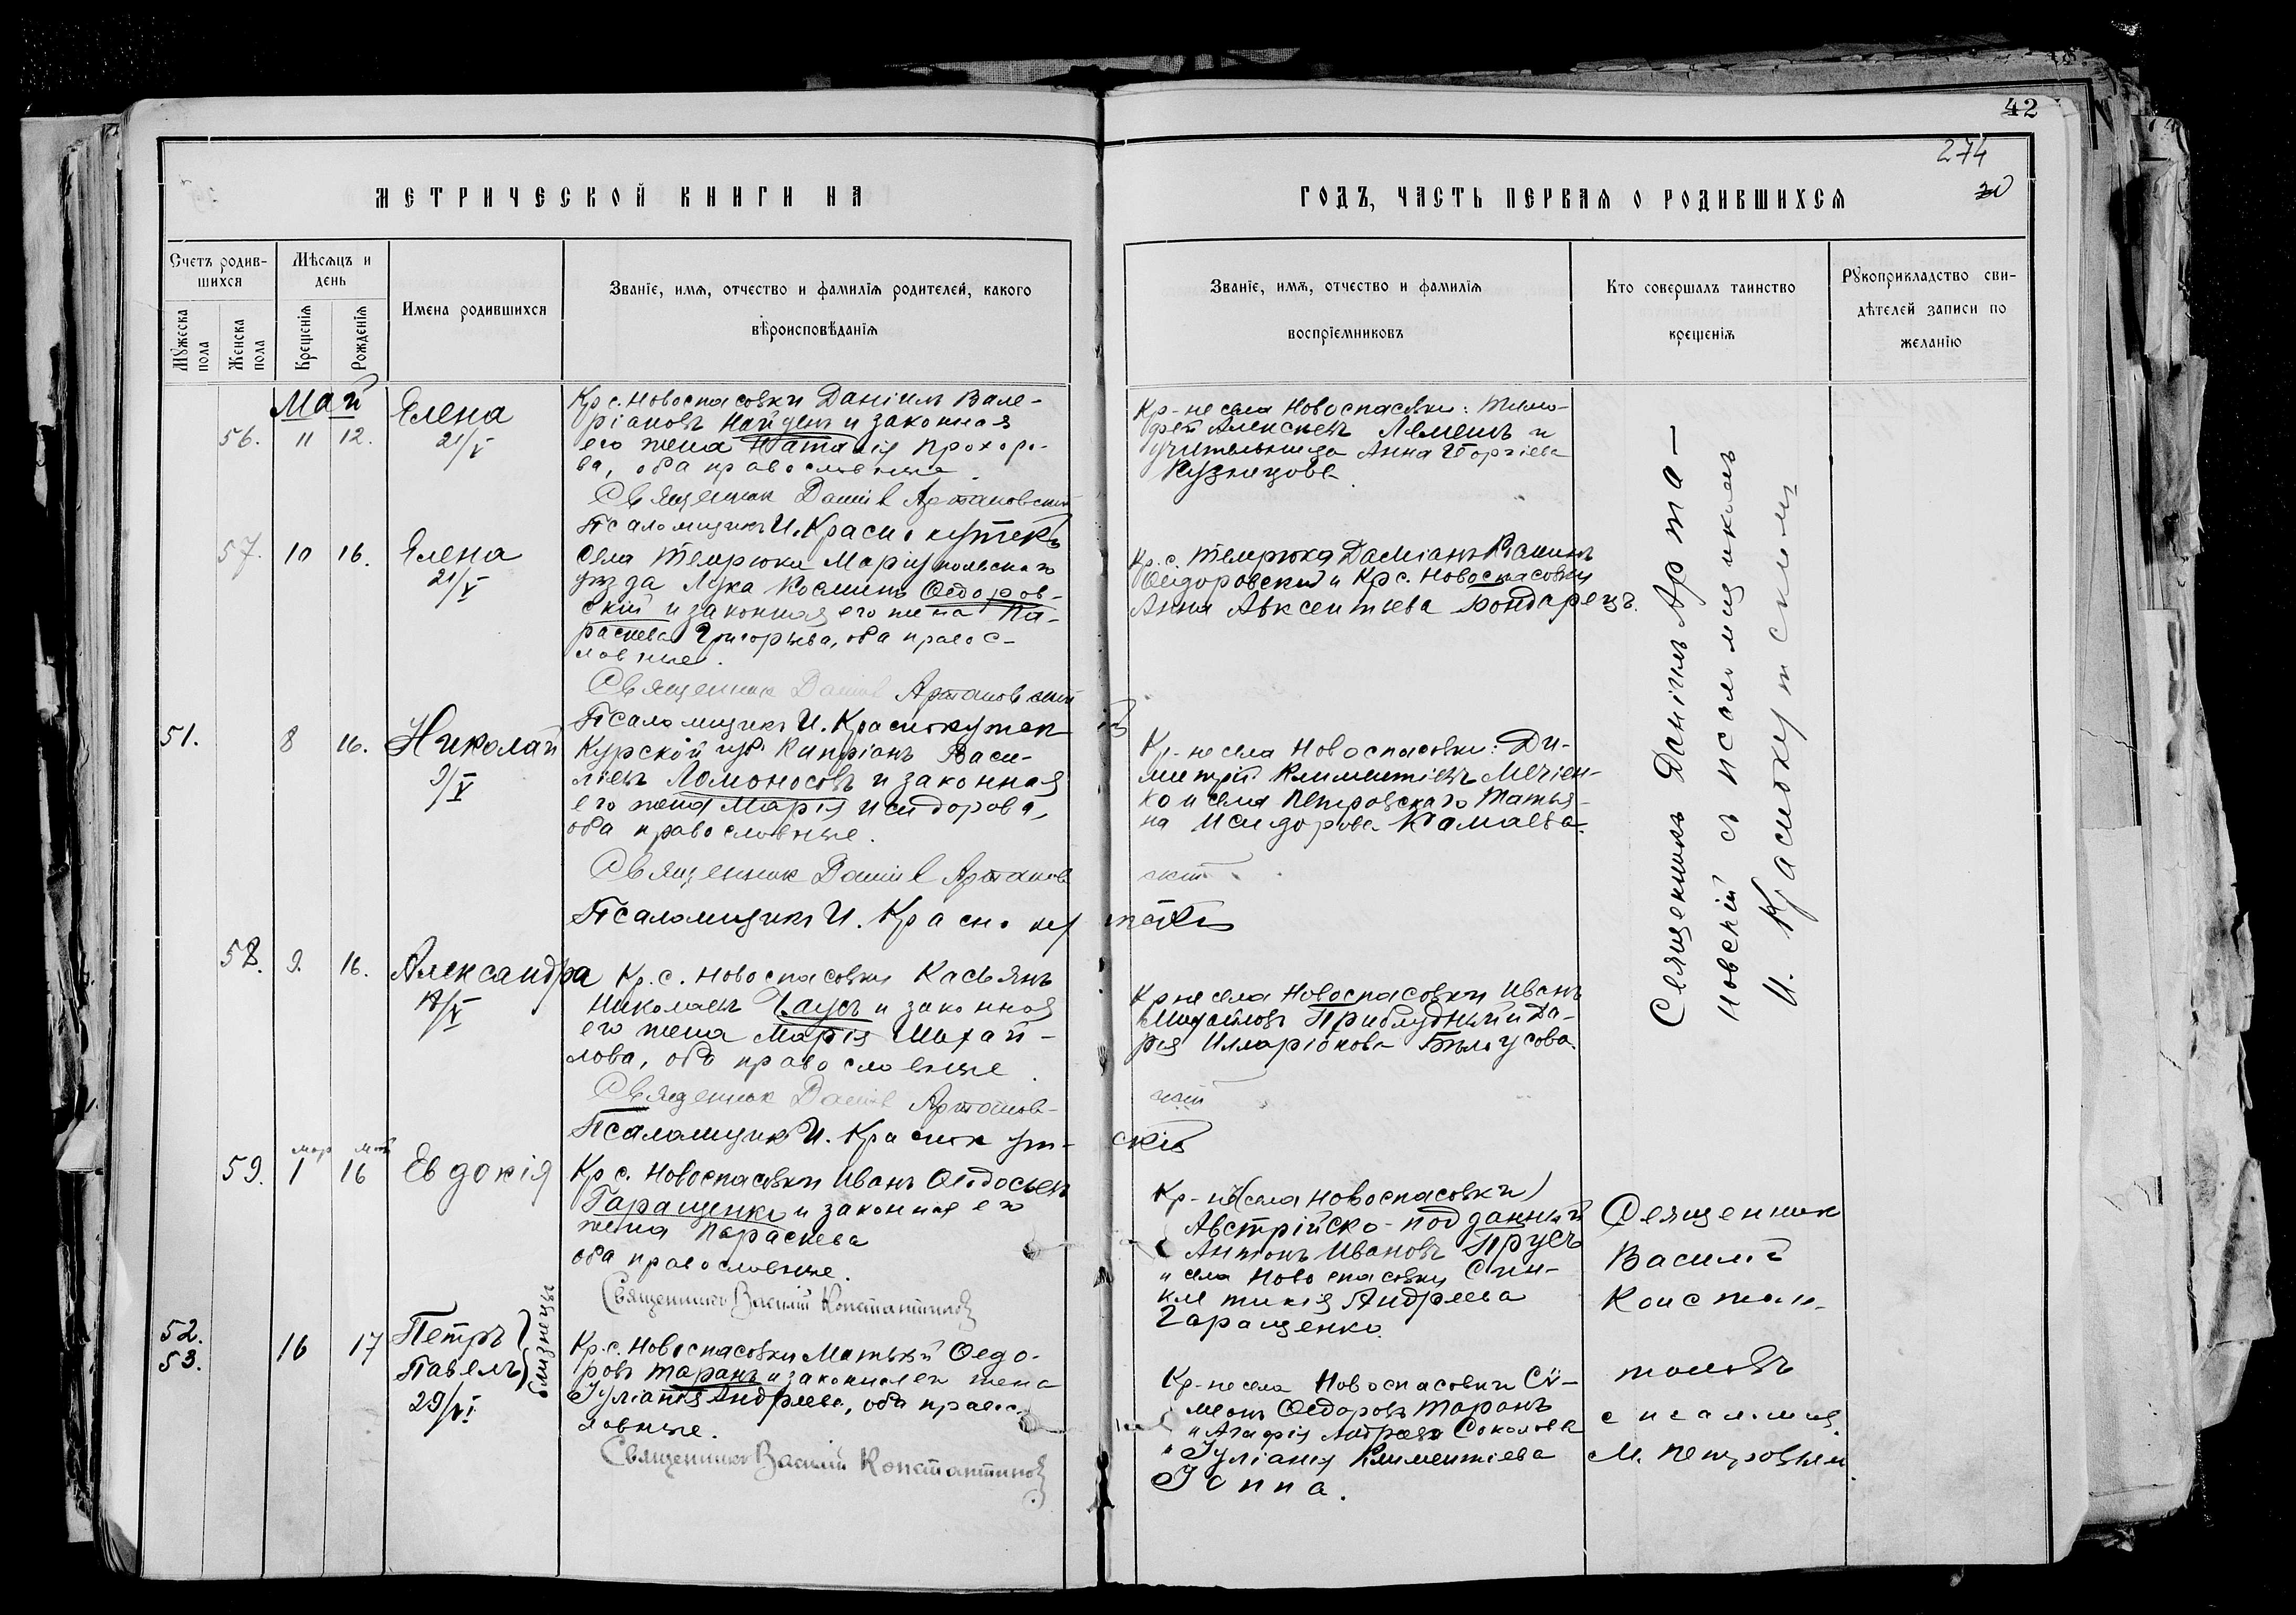 42
274
20
МЕТРИЧЕСКОЙ КНИГИ НА
ГОДЪ, ЧАСТЬ ПЕРВАЯ О РОДИВШИХСЯ
Счетъ родив-
шихся
Мѣсяцъ и
день
Мужеска
пола
Женска
пола
Крещенія
Рожденія
Имена родившихся
Званіе, имя, отчество и фамилія родителей, какого
вѣроисповѣданія
Званіе, имя, отчество и фамилія
воспріемниковъ
Кто совершалъ таинство
крещенія
Рукоприкладство сви-
дѣтелей записи по
желанію
Май
56. 11 12.
Елена
21/V
Кр с. Новоспасовки Даніилъ Вале-
ріановъ Найденъ и законная
его жена Наталія Прохоро-
ва, оба православные
Священник Даниил Артановский
Псаломщикъ И. Краснокутскъ
Кр-не села Новоспасовки: Тимо-
фей Алексѣевъ Лемешъ и
учительница Анна Георгіева
Кузнецова.
57. 10 16.
Елена
21/V
Села Темрюка Маріупольскаго
уѣзда Лука Косминъ Ѳедоров-
скій и законная его жена Па-
раскева Григорьева, оба правос-
лавные.
Священник Даниил Артановский
Псаломщикъ И. Краснокутск
Кр. с. Темрюка Даміанъ Косминъ
Ѳедоровскій и Кр с. Новоспасовки
Анна Авксентьева Бондарецъ.
51. 8 16.
Николай
9/V
Курской губ. Кипріанъ Васи-
ліевъ Ломоносовъ и законная
его жена Марія Исидорова,
оба православные.
Священник Даниил Артанов
ский
Псаломщикъ И. Краснокутскій
Кр-не села Новоспасовки: Ди-
митрій Климентіевъ Мечіен-
ко и села Петровскаго Татья-
на Исидорова Камаева.
58. 9. 16.
Александра
Кр. с. Новоспасовки Касьянъ
Николаевъ Чаусъ и законная
его жена Марія Михай-
лова, оба православные.
Священник Даниил Артанов-
ский
Псаломщикъ И. Краснокут-
скій
Кр не села Новоспасовки Иванъ
Михайловъ Приблудный и Да-
рія Илларіонова Бѣлоусова.
Священникъ Даніилъ Арта-
новскій съ псаломщикомъ
И. Краснокутскимъ
59. 1 16
Евдокія
Кр с. Новоспасовки Иванъ Ѳедосѣевъ
Геращенко и законная его
жена Параскева
оба православные.
Священникъ Василій Константиновъ
Кр-не (села Новоспасовки)
Австрійско-подданный
Антонъ Ивановъ Прусъ
и села Новоспасовки Син-
клитикія Андреева
Геращенко.
52.
53. 16 17
Петръ
Павелъ
близнецы
29/VI
Кр. с. Новоспасовки Матвѣй Ѳедо-
ровъ Таранъ и законная его жена
Іуліанія Андреева, оба правос-
лавные.
Священникъ Василій Константиновъ
Кр-не села Новоспасовки Си-
меонъ Ѳедоровъ Таранъ
и Агафія Андреева Соколова
и Іуліанія Климентіева
Іоппа.
Священникъ
Василій
Констан-
тиновъ
с псаломщ.
М. Петровымъ.